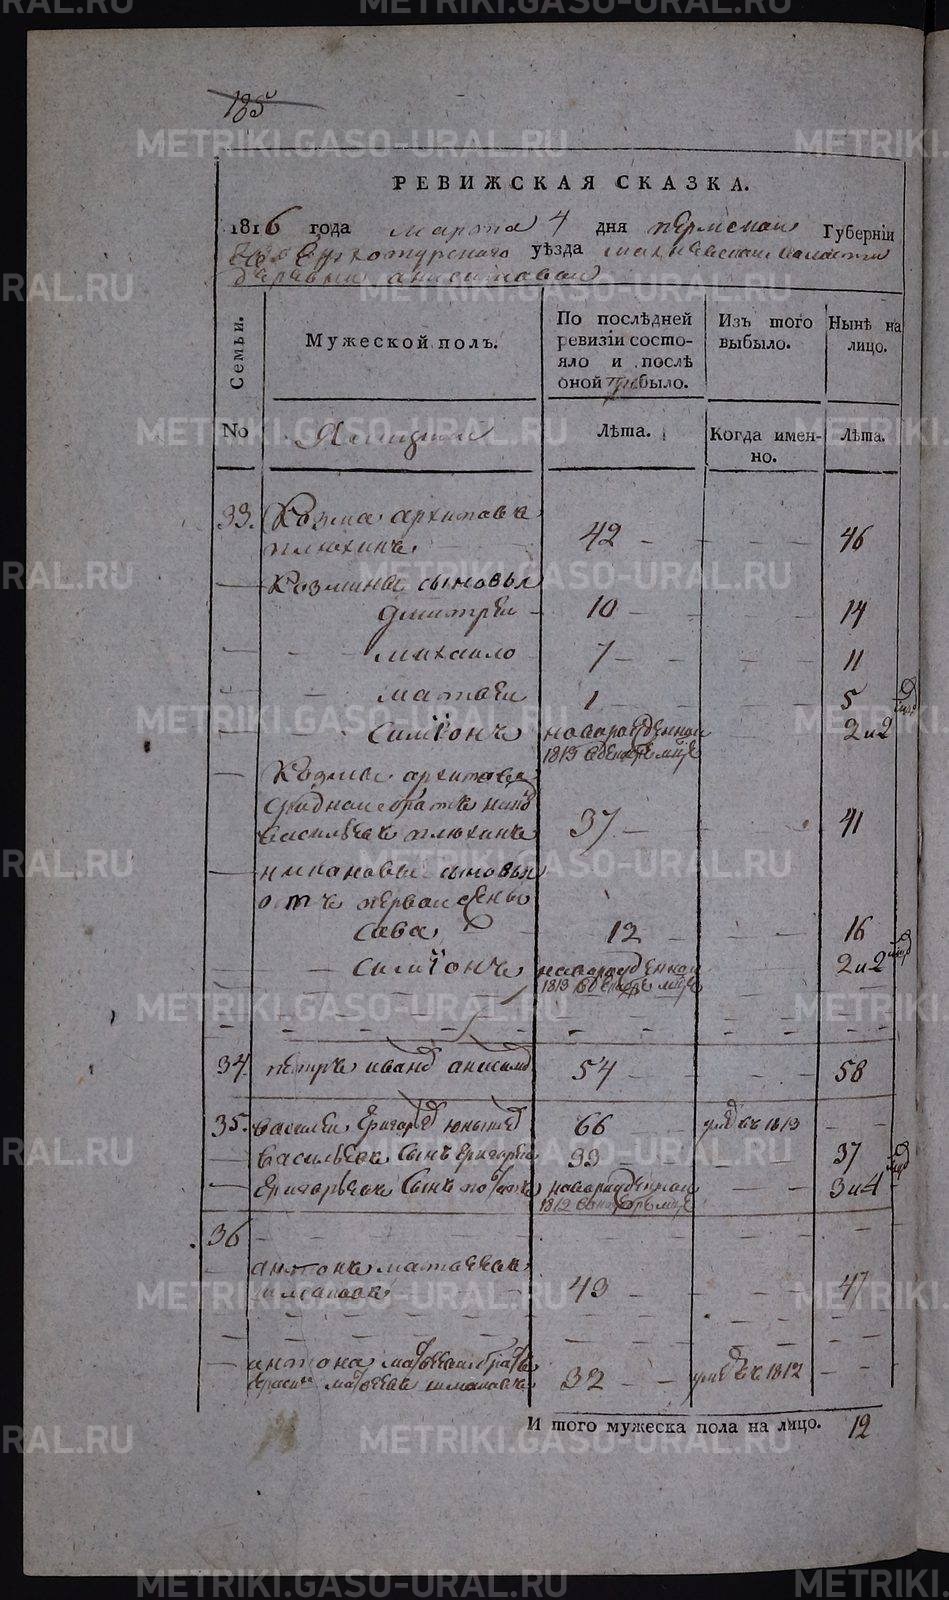 185
РЕВИЖСКАЯ СКАЗКА.
1816 года марта 4 дня пермской Губерніи
Верхотурскаго уѣзда волости
деревни
Семьи.
Мужеской полъ.
По послѣдней ревизіи состояло и послѣ оной прибыло.
Изъ того выбыло.
Нынѣ на лицо.
No
Ямщики
Лѣта.
Когда именно.
Лѣта.
33. Козма архипавъ
плюхинъ 42 46
Козмины сыновья
Дмитреи 10 14
михаило 7 11
матвеи 1 5
Симïонъ новорожденной 2 и 2
1813 в декабре мце
Козмы архипова
васильевъ плюхинъ 37 41
никановы сыновья
отъ первои жены
Сава 12 16
Симïонъ новорожденной 2 и 2
1813 в декабре мце
34. петръ иванов анисимов 54 58
35. василеи григорев 66 умре въ 1813
васильевъ сынъ григореи 33 37
григорьевъ сынъ новорожденнои 3 и 4
1812
36
антонъ матвеевъ
43 47
антона матвеева братъ
матвеевъ 32 умре въ 1812
И того мужеска пола на лицо. 12
METRIKI.GASO-URAL.RU